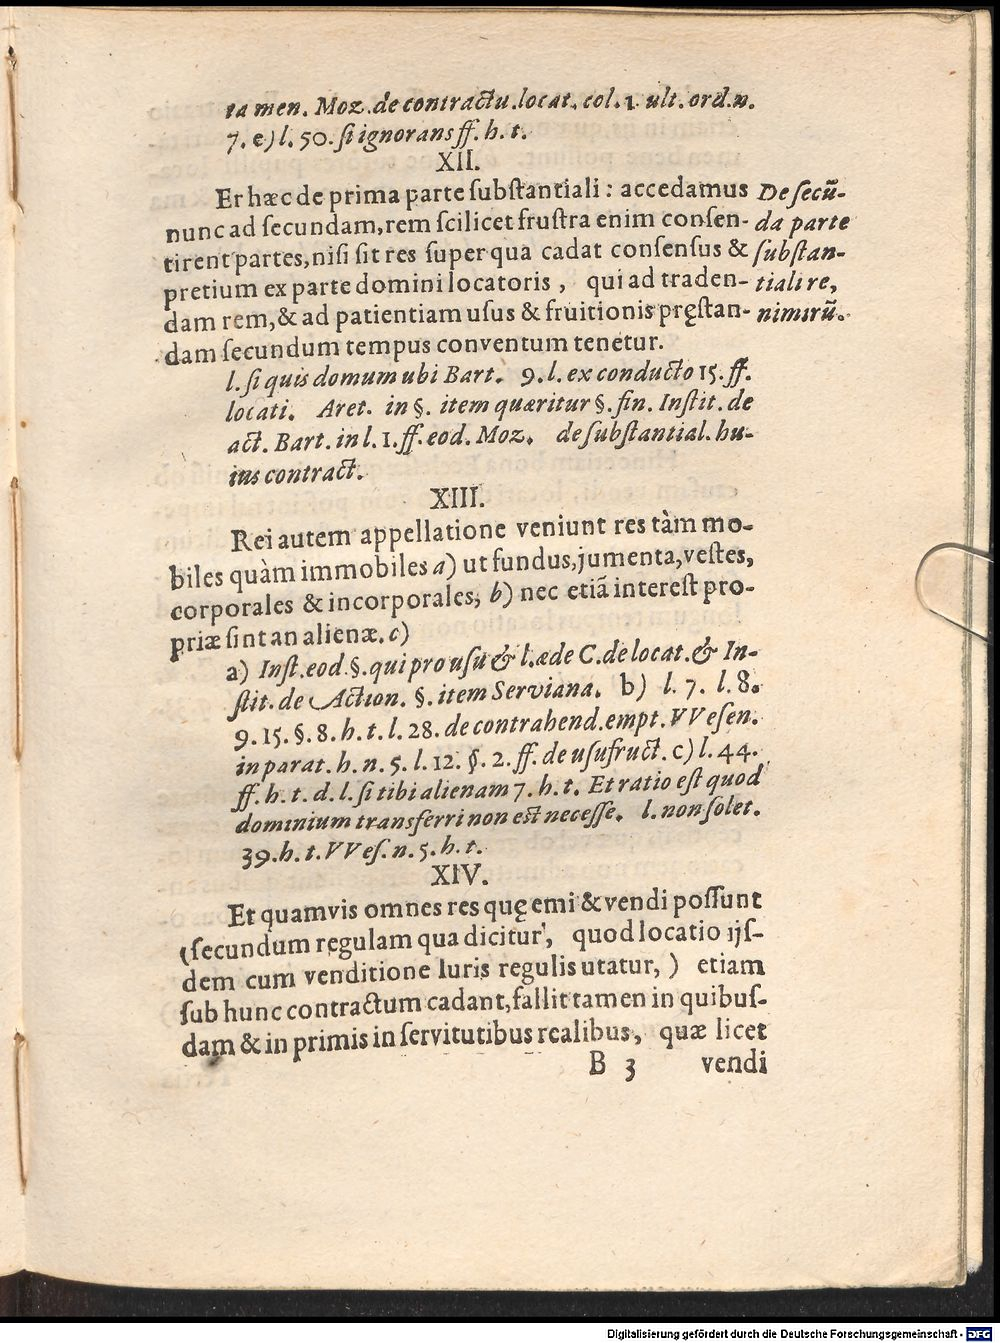 tamen. Moz. de contractu. locat. col. 1. ult. ord. n.
7. e) l. 50. ſi ignorans ff. h. t.
XII.
Et hæc de prima parte ſubſtantiali: accedamus
nunc ad ſecundam, rem ſcilicet fruſtra enim conſen-
tirent partes, niſi ſit res ſuper qua cadat conſenſus &
pretium ex parte domini locatoris, qui ad traden-
dam rem, & ad patientiam uſus & fruitionis pręſtan-
dam ſecundum tempus conventum tenetur.
De ſecũ-
da parte
ſubſtan-
tiali re,
nimirũ.
l. ſi quis domum ubi Bart. 9. l. ex conducto 15. ff.
locati. Aret. in §. item quæritur §. fin. Inſtit. de
act. Bart. in l. 1. ff. eod. Moz. de ſubſtantial. hu-
ius contract.
XIII.
Rei autem appellatione veniunt res tàm mo-
biles quàm immobiles a) ut fundus, jumenta, veſtes,
corporales & incorporales, b) nec etiã intereſt pro-
priæ ſint an alienæ. c)
a) Inſt. eod. §. qui pro uſu & l. æde C. de locat. & In-
ſtit. de Action. §. item Serviana. b) l. 7. l. 8.
9. 15. §. 8. h. t. l. 28. de contrahend. empt. VVeſen.
in parat. h. n. 5. l. 12. §. 2. ff. de uſufruct. c) l. 44.
ff. h. t. d. l. ſi tibi alienam 7. h. t. Et ratio eſt quod
dominium transferri non eſt neceſſe. l. non ſolet.
39. h. t. VVeſ. n. 5. h. t.
XIV.
Et quamvis omnes res quę emi & vendi poſſunt
(ſecundum regulam qua dicitur, quod locatio ijſ-
dem cum venditione Iuris regulis utatur,) etiam
ſub hunc contractum cadant, fallit tamen in quibuſ-
dam & in primis in ſervitutibus realibus, quæ licet
B 3 vendi
Digitalisierung gefördert durch die Deutsche Forschungsgemeinschaft - DFG